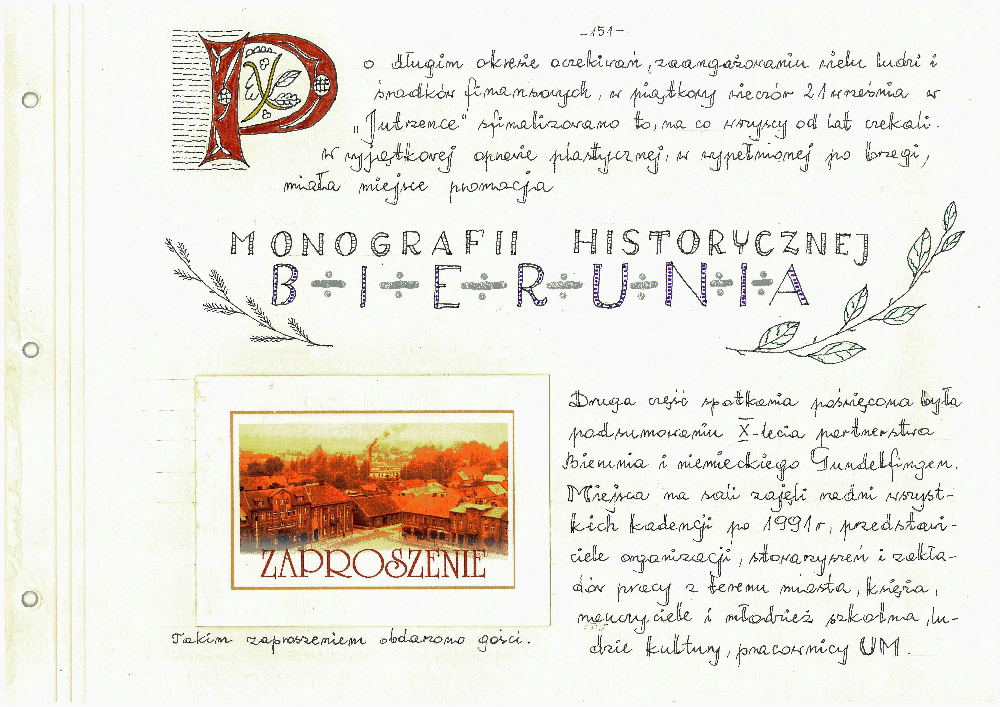 -151-
Po długim okresie oczekiwań, zaangażowaniu wielu ludzi i
środków finansowych, w piątkowy wieczór 21 września w
„Jutrzence" sfinalizowano to, na co wszyscy od lat czekali.
W wyjątkowej oprawie plastycznej, w wypełnionej po brzegi,
miała miejsce promocja
MONOGRAFII HISTORYCZNEJ
B÷I÷E÷R÷U÷N÷I÷A
Druga część spotkania poświęcona była
podsumowaniu X-lecia partnerstwa
Bierunia i niemieckiego Gundelfingen.
Miejsca na sali zajęli radni wszyst-
kich kadencji po 1991r, przedstawi-
ciele organizacji, stowarzyszeń i zakła-
dów pracy z terenu miasta, księża,
nauczyciele i młodzież szkolna, lu-
dzie kultury, pracownicy UM.
ZAPROSZENIE
Takim zaproszeniem obdarzono gości.